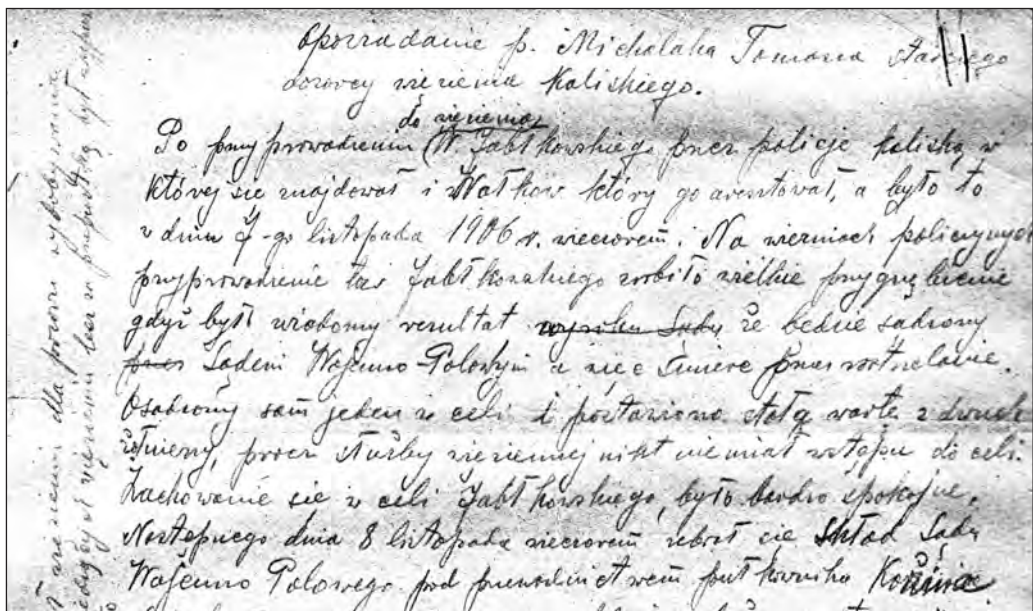 Opowiadanie p. Michalaka Tomasza Starszego
dozorcy więzienia Kaliskiego.
do więzienia
Po przyprowadzeniu W. Jabłkowskiego przez policje kaliską, w
której sie znajdował i Watkow który go aresztował, a było to
w dniu 7-go listopada 1906 r. wieczorem. Na więzniach policyjnych
przyprowadzenie tas Jabłkowskiego zrobiło wielkie przygnębienie
gdyż był wiadomy rezultat wyroku Sądu że bedzie sadzony
przez Sadem Wojenno-Polowym a więc śmierc przez rostrzelanie.
Osadzony sam jeden w celi i postawiono stałą warte z dwuch
żołnierzy, procz służby wieziennej nikt nie miał wstępu do celi.
Zachowanie sie w celi Jabłkowskiego, było bardzo spokojne.
Nastepnego dnia 8 listopada wieczorem zebrał sie Skład Sądu
Wojenno Polowego pod przewodnictwem pułkownika
wiezieniu dla pozoru wybobywania
siedział w więzieniu lecz w był